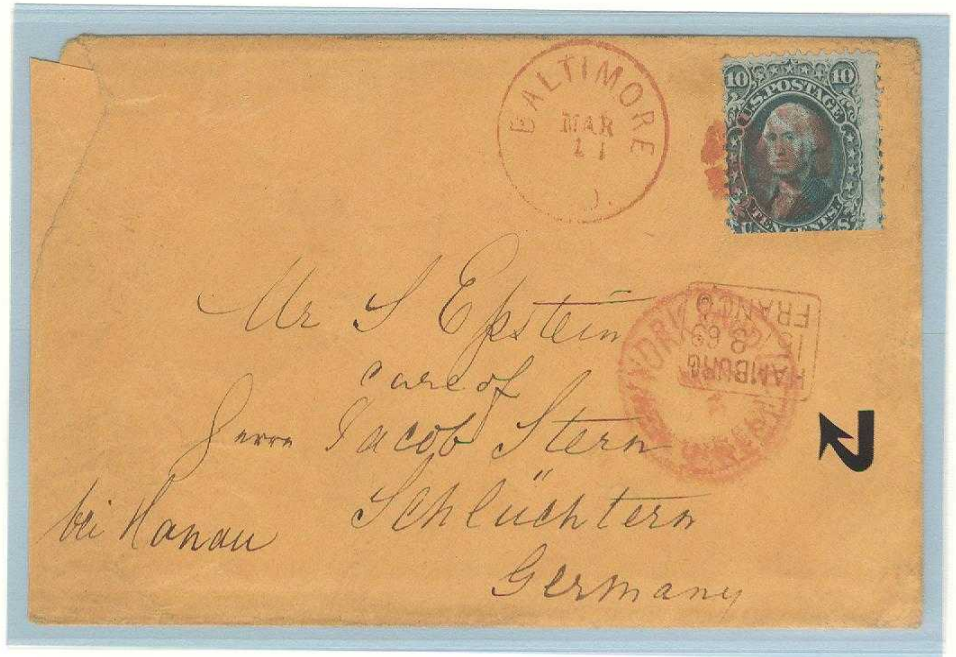 BALTIMORE
MAR
11
10 10
U.S. POSTAGE
TEN CENTS
U S
Mr S Epstein
care of
Herrn Jacob Stern
Schlüchtern
bei Hanau
Germany
YORK
HAMBURG
69
FRANCO
2